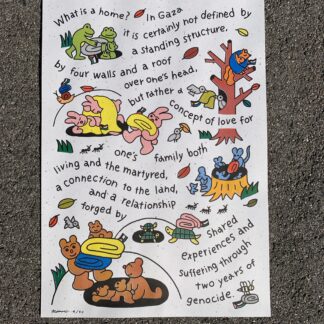 What is a home? In Gaza
it is certainly not defined by
a standing structure,
by four walls and a roof
over one's head,
but rather a
concept of love for
one's family both
living and the martyred,
a connection to the land,
and a relationship
forged by
shared
experiences and
suffering through
two years of
genocide.